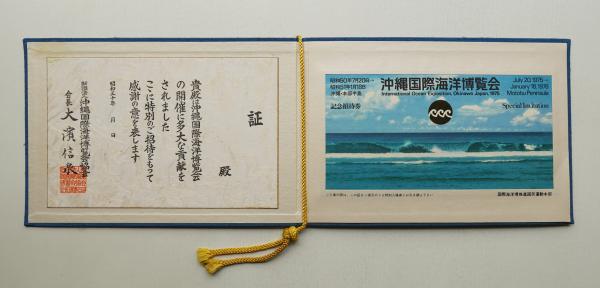 証
殿
貴殿は沖縄国際海洋博覧会
の開催に多大な貢献を
されました
ここに特別のご招待をもって
感謝の意を表します
昭和五十年 月 日
財団法人 沖縄国際海洋博覧会協会
会長 大濱信泉
昭和50年7月20日~
昭和51年1月18日
沖縄・本部半島
沖縄国際海洋博覧会
International Ocean Exposition, Okinawa Japan, 1975
July 20, 1975~
January 18, 1976
Motobu Peninsula
記念招待券
Special Invitation
国際海洋博推進国民運動本部